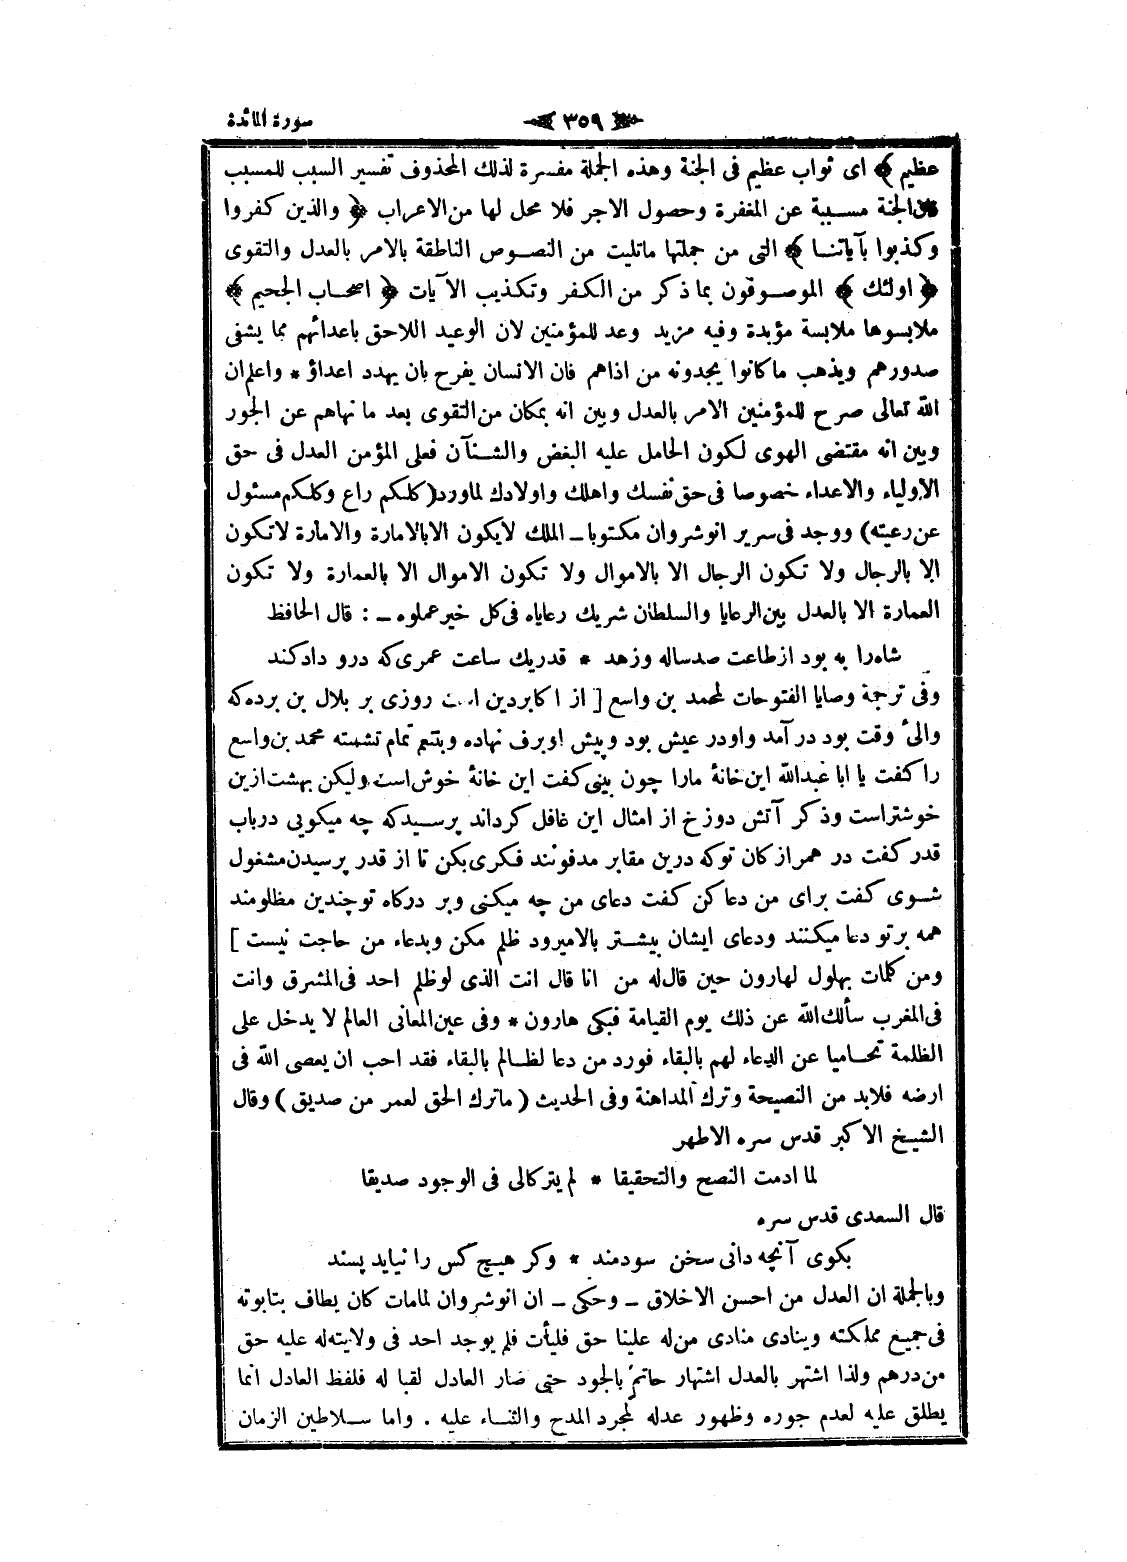 سورة المائدة
﴿ ٣٥٩ ﴾
عظيم ﴾ اى ثواب عظيم فى الجنة وهذه الجملة مفسرة لذلك المحذوف تفسير السبب للمسبب
الجنة مسببة عن المغفرة وحصول الاجر فلا محل لها من الاعراب ﴿ والذين كفروا
وكذبوا بآياتنا ﴾ التى من جملتها ماتليت من النصوص الناطقة بالامر بالعدل والتقوى
﴿ اولئك ﴾ الموصوفون بما ذكر من الكفر وتكذيب الآيات ﴿ اصحاب الجحيم ﴾
ملابسوها ملابسة مؤبدة وفيه مزيد وعد للمؤمنين لان الوعيد اللاحق باعدائهم مما يشفى
صدورهم ويذهب ماكانوا يجدونه من اذاهم فان الانسان يفرح بان يهدد اعداؤ * واعلم ان
الله تعالى صرح للمؤمنين الامر بالعدل وبين انه بمكان من التقوى بعد ما نهاهم عن الجور
وبين انه مقتضى الهوى لكون الحامل عليه البغض والشنآن فعلى المؤمن العدل فى حق
الاولياء والاعداء خصوصا فى حق نفسك واهلك واولادك لماورد (كلكم راع وكلكم مسئول
عن رعيته) ووجد فى سرير انوشروان مكتوبا ـ الملك لايكون الا بالامارة والامارة لاتكون
الا بالرجال ولا تكون الرجال الا بالاموال ولا تكون الاموال الا بالعمارة ولا تكون
العمارة الا بالعدل بين الرعايا والسلطان شريك رعاياه فى كل خير عملوه ـ : قال الحافظ
شاه را به بود از طاعت صدساله وزهد * قدر يك ساعت عمرى كه درو داد كند
وفى ترجمة وصايا الفتوحات لمحمد بن واسع [ از اكابر دين است روزى بر بلال بن برده كه
والئ وقت بود در آمد واودر عيش بود وپيش اوبرف نهاده وبتنعم تمام نشسته محمد بن واسع
را كفت يا ابا عبدالله اين خانهٔ مارا چون بينى كفت اين خانهٔ خوش است وليكن بهشت ازين
خوشتراست وذكر آتش دوزخ از امثال اين غافل كرداند پرسيد كه چه ميكويى درباب
قدر كفت در همرازكان توكه درين مقابر مدفونند فكرى بكن تا از قدر پرسيدن مشغول
شوى كفت براى من دعا كن كفت دعاى من چه ميكنى وبر دركاه تو چندين مظلومند
همه برتو دعا ميكنند ودعاى ايشان بيشتر بالاميرود ظلم مكن وبدعاء من حاجت نيست ]
ومن كلمات بهلول لهارون حين قال له من انا قال انت الذى لو ظلم احد فى المشرق وانت
فى المغرب سألك الله عن ذلك يوم القيامة فبكى هارون * وفى عين المعانى العالم لا يدخل على
الظلمة تحاميا عن الدعاء لهم بالبقاء فورد من دعا لظالم بالبقاء فقد احب ان يعصى الله فى
ارضه فلابد من النصيحة وترك المداهنة وفى الحديث ( ماترك الحق لعمر من صديق ) وقال
الشيخ الاكبر قدس سره الاطهر
لما ادمت النصح والتحقيقا * لم يتركالى فى الوجود صديقا
قال السعدى قدس سره
بكوى آنچه دانى سخن سودمند * وكر هيچ كس را نيايد پسند
وبالجملة ان العدل من احسن الاخلاق ـ وحكى ـ ان انوشروان لمامات كان يطاف بتابوته
فى جميع مملكته وينادى منادى من له علينا حق فليأت فلم يوجد احد فى ولايته له عليه حق
من درهم ولذا اشتهر بالعدل اشتهار حاتم بالجود حتى صار العادل لقبا له فلفظ العادل انما
يطلق عليه لعدم جوره وظهور عدله لمجرد المدح والثناء عليه . واما سلاطين الزمان